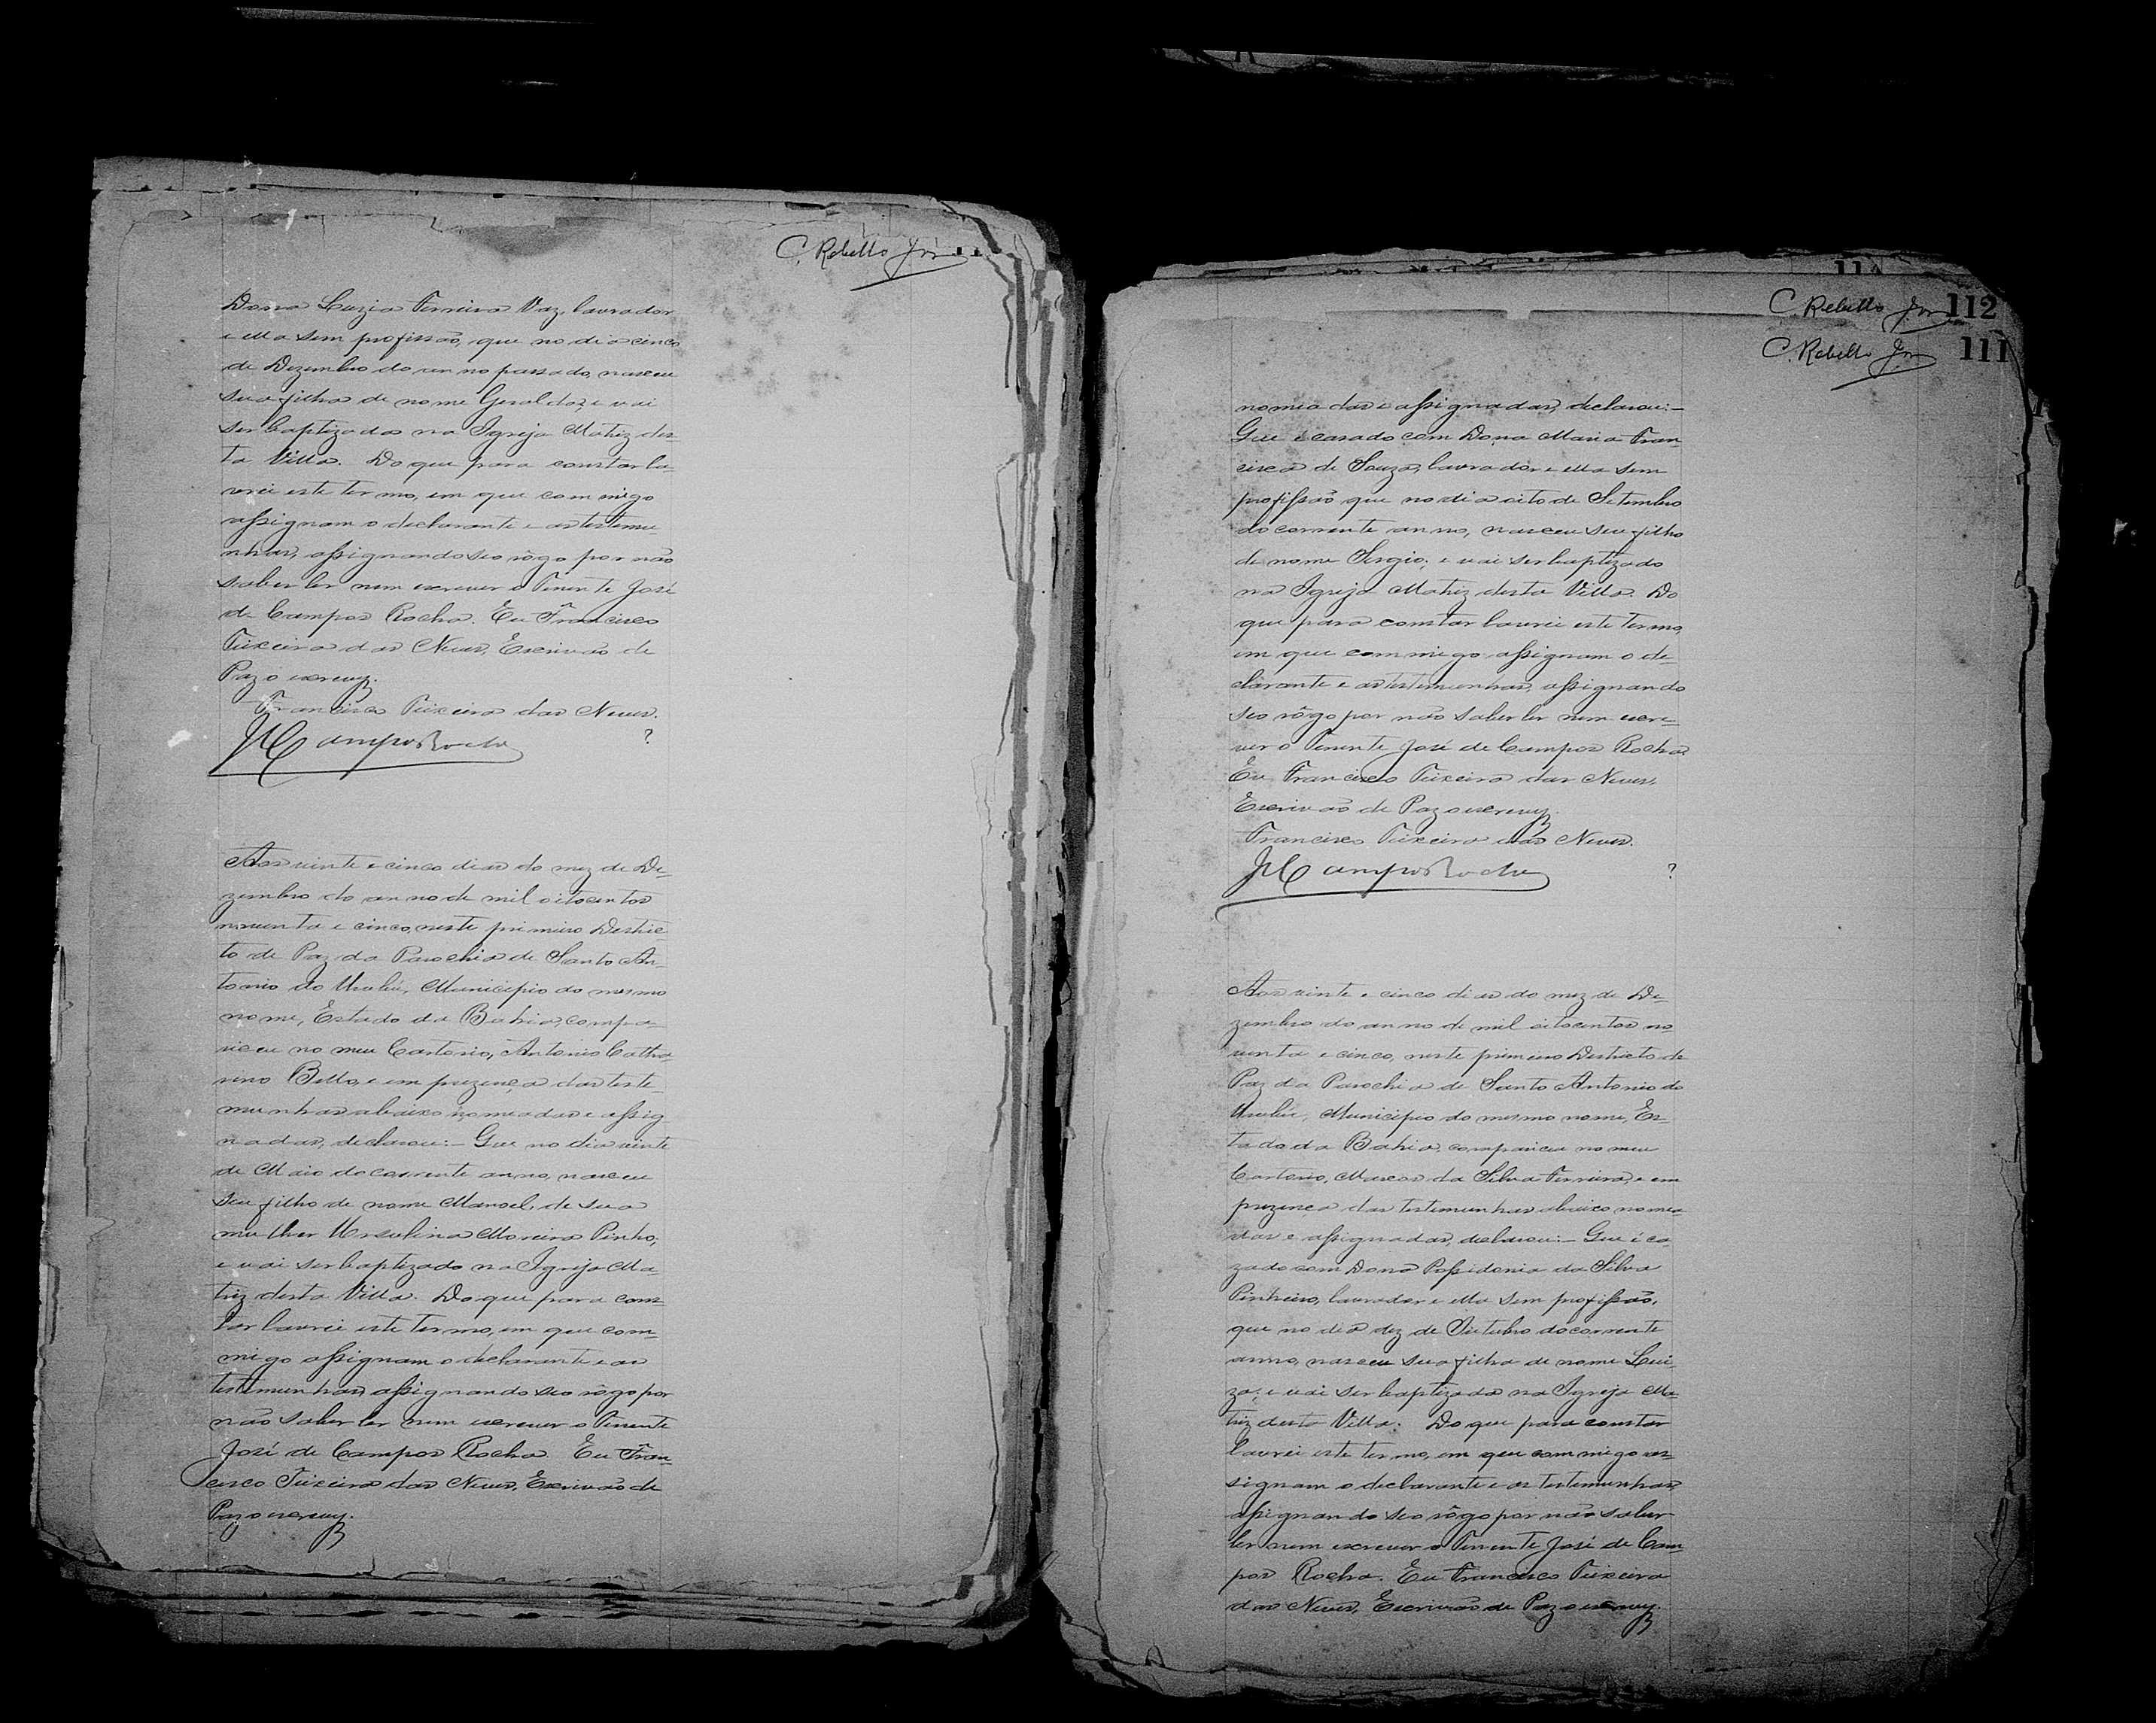 C. Rebello Jor
Dona Luzia Ferreira Vaz, lavrador
e ella sem profissão, que no dia cinco
de Dezembro do anno passado, nasceu
sua filha de nome Geralda; e vai
ser baptizada na Igreja Matriz des-
ta Villa. Do que para constar la-
vrei este termo, em que commigo
assignam o declarante e as testemu-
nhas, assignando seo rôgo por não
saber ler nem escrever o Tenente José
de Campos Rocha. Eu Francisco
Teixeira das Neves, Escrivão de
Paz o escrevy.
Francisco Teixeira das Neves.
JCamposRocha ?
Aos vinte e cinco dias do mez de De-
zembro do anno de mil oitocentos
noventa e cinco, neste primeiro Destric-
to de Paz da Parochia de Santo An-
tonio do Urubú, Municipio do mesmo
nome, Estado da Bahia, compa
receu no meu Cartorio, Antonio Catha
rino Bello, e em prezença das teste
munhas abaixo nomeadas e assig
nadas, declarou:- Que no dia vinte
de Maio do corrente anno, nasceu
seu filho de nome Manoel, de sua
mulher Ursulina Moreira Pinho;
e vai ser baptizado na Igreja Ma-
triz desta Villa. Do que para cons-
tar lavrei este termo, em que com-
migo assignam o declarante e as
testemunhas, assignando seo rôgo por
não saber ler nem escrever o Tenente
José de Campos Rocha. Eu Fran-
cisco Teixeira das Neves, Escrivão de
Paz o escrevy.
114
C. Rebello Jor 112
C. Rebello Jor 111
nomeadas e assignadas, declarou:-
Que é casado com Dona Maria Fran-
cisca de Souza, lavrador e ella sem
profissão que no dia oito de Setembro
do corrente anno, nasceu seu filho
de nome Sergio; e vai ser baptizado
na Igreja Matriz desta Villa. Do
que para constar lavrei este termo,
em que commigo assignam o de-
clarante e as testemunhas, assignando
seo rôgo por não saber ler nem escre-
ver o Tenente José de Campos Rocha.
Eu Francisco Teixeira das Neves,
Escrivão de Paz o escrevy.
Francisco Teixeira das Neves.
JCamposRocha ?
Aos vinte e cinco dias do mez de De-
zembro do anno de mil oitocentos no-
venta e cinco, neste primeiro Destricto de
Paz da Parochia de Santo Antonio do
Urubú, Municipio do mesmo nome, Es-
tado da Bahia, compareceu no meu
Cartorio, Marcos da Silva Ferreira, e em
prezença das testemunhas abaixo nomea
das e assignadas, declarou:- Que é ca
zado com Dona Possidonia da Silva
Pinheiro, lavrador e ella sem profissão,
que no dia dez de Outubro do corrente
anno, nasceu sua filha de nome Lui-
za; e vai ser baptizada na Igreja Ma-
triz desta Villa. Do que para constar
lavrei este termo, em que commigo as-
signam o declarante e as testemunhas,
assignando seo rôgo por não saber
ler nem escrever o Tenente José de Cam-
pos Rocha. Eu Francisco Teixeira
das Neves, Escrivão de Paz o escrevy.